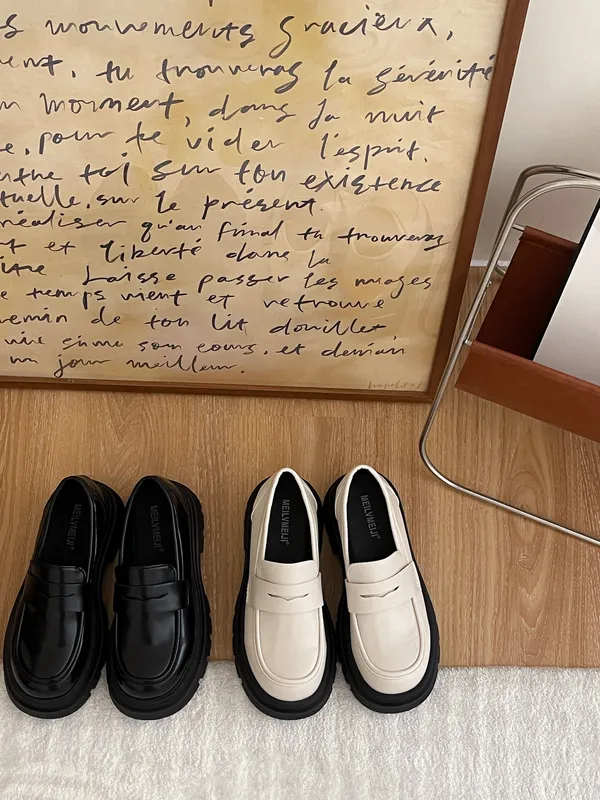 s mouvements gracieux,
ent, tu trouveras la sérénité
n moment, dans la nuit
e, pour te vider l'esprit.
toi sur ton existence
tuelle, sur le présent.
réaliser qu'au final tu trouveras
t et liberté dans la
Laisse passer les nuages
e temps vient et retrouve
emin de ton lit douillet,
son cours, et demain
un jour meilleur.
MEILVMEIJI
MEILVMEIJI
MEILVMEIJI
MEILVMEIJI